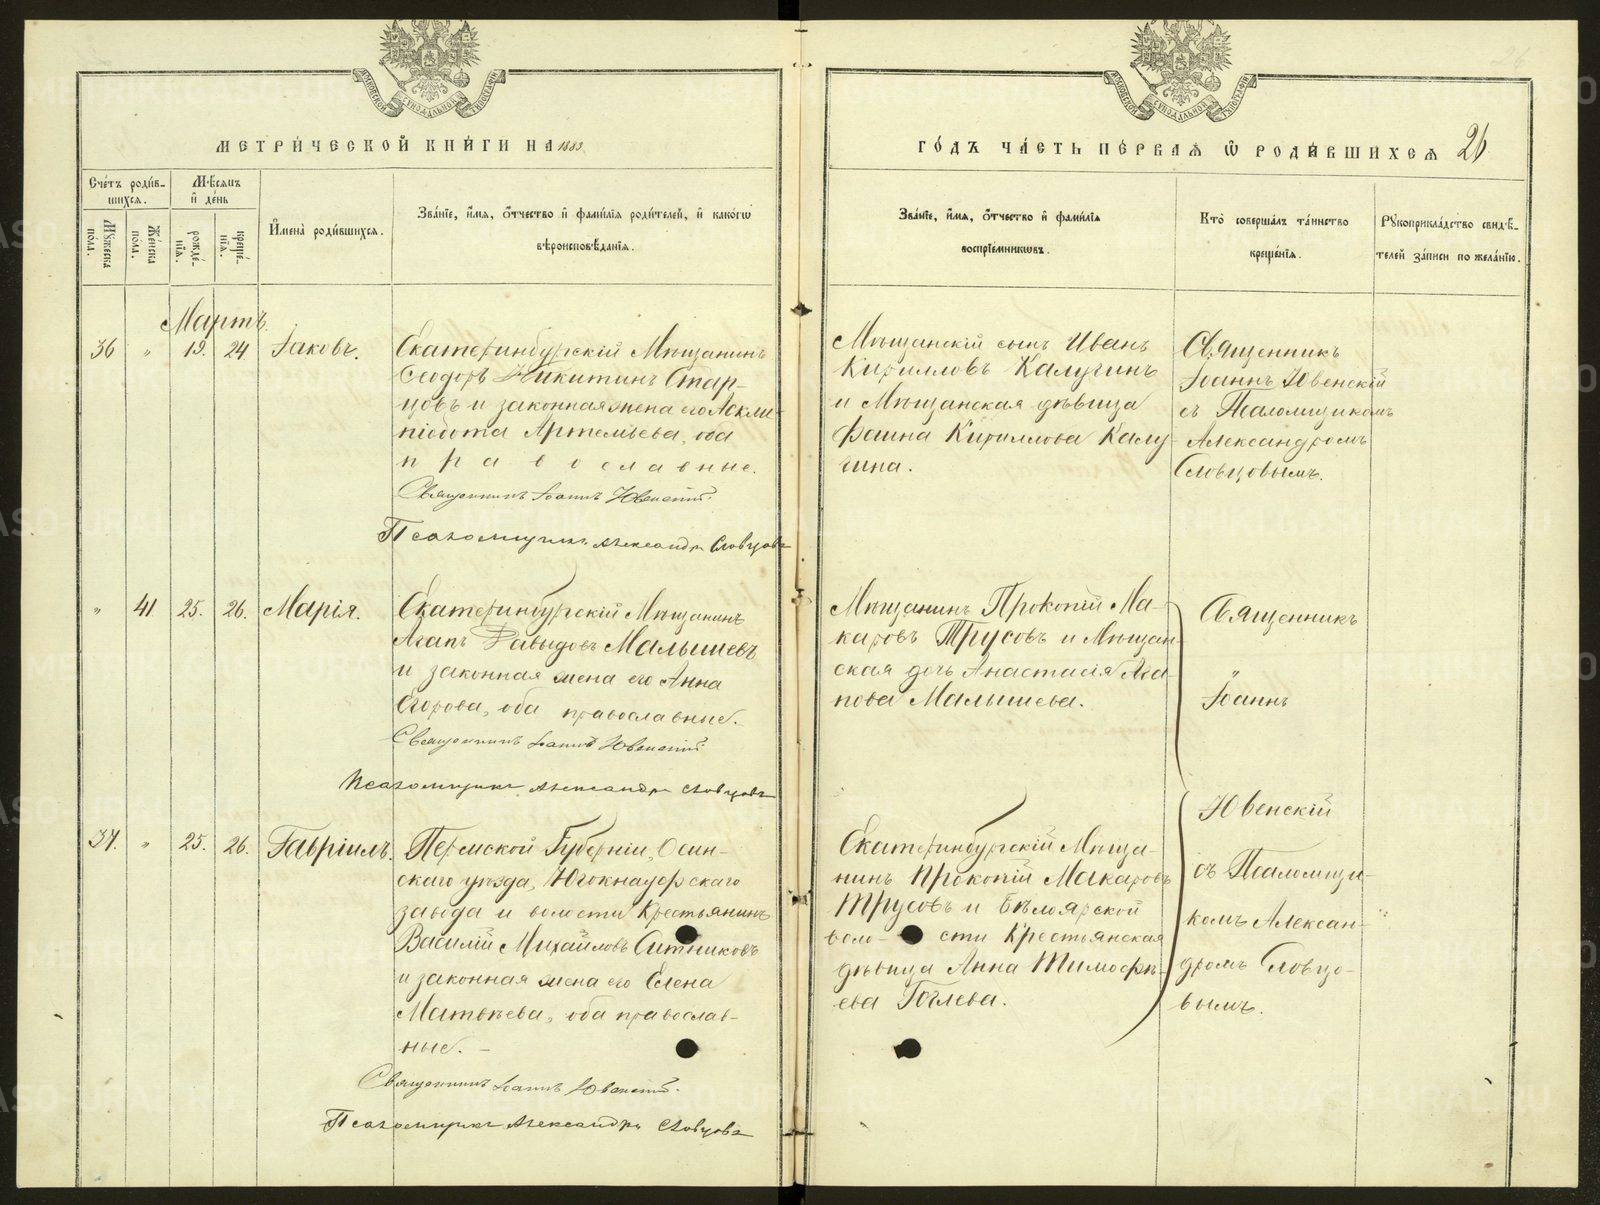 МЕТРИ́ЧЕСКОЙ КНИ́ГИ НА 1883
ГО́ДЪ ЧА́СТЬ ПЕ́РВАѦ Ѡ҆ РОДИ́ВШИХСѦ 26
Сче́тъ роди́в-
шихсѧ.
Мѣ́сѧцъ
и҆ де́нь
И҆мена̀ роди́вшихсѧ.
Зва́нїе, и҆́мѧ, ѻ҆́тчество и҆ фами́лїѧ роди́телей, и҆ како́гѡ
вѣроисповѣ́данїѧ.
Зва́нїе, и҆́мѧ, ѻ҆́тчество и҆ фами́лїѧ
воспрїе́мникѡвъ.
Кто̀ соверша́лъ та́инство
креще́нїѧ.
Рꙋкоприкла́дство свидѣ́-
телей за́писи по жела́нїю.
Мꙋ́жеска
по́ла.
Же́нска
по́ла.
рожде́-
нїѧ.
креще́-
нїѧ.
Мартъ.
36 " 19. 24 Іаковъ.
Екатеринбургскій Мѣщанинъ
Ѳеодоръ Никитинъ Стар-
цовъ и законная жена его Аскли-
піодота Артемьева, оба
православные.
Священникъ Іоаннъ Ювенскій.
Псаломщикъ Александръ Словцовъ
Мѣщанскій сынъ Иванъ
Кирилловъ Калугинъ
и Мѣщанская дѣвица
Фаина Кириллова Калу-
гина.
Священникъ
Іоаннъ Ювенскій
съ Псаломщикомъ
Александромъ
Словцовымъ.
" 41 25. 26. Марія.
Екатеринбургскій Мѣщанинъ
Агапъ Давыдовъ Малышевъ
и законная жена его Анна
Егорова, оба православные.
Священникъ Іоаннъ Ювенскій.
Псаломщикъ Александръ Словцовъ
Мѣщанинъ Прокопій Ма-
каровъ Трусовъ и Мѣщан-
ская дочь Анастасія Ага-
пова Малышева.
Священникъ
"
Іоаннъ
Ювенскій
съ Псаломщи-
комъ Алексан-
дромъ Словцо-
вымъ.
37. " 25. 26. Гавріилъ.
Пермской Губерніи, Осин-
скаго уѣзда, Югокнауфскаго
завода и волости Крестьянинъ
Василій Михайловъ Ситниковъ
и законная жена его Елена
Матвѣева, оба православ-
ные. -
Священникъ Іоаннъ Ювенскій.
Псаломщикъ Александръ Словцовъ
Екатеринбургскій Мѣща-
нинъ Прокопій Макаровъ
Трусовъ и Бѣлоярской
воло- сти Крестьянская
дѣвица Анна Тимофѣ-
ева Гоглева.